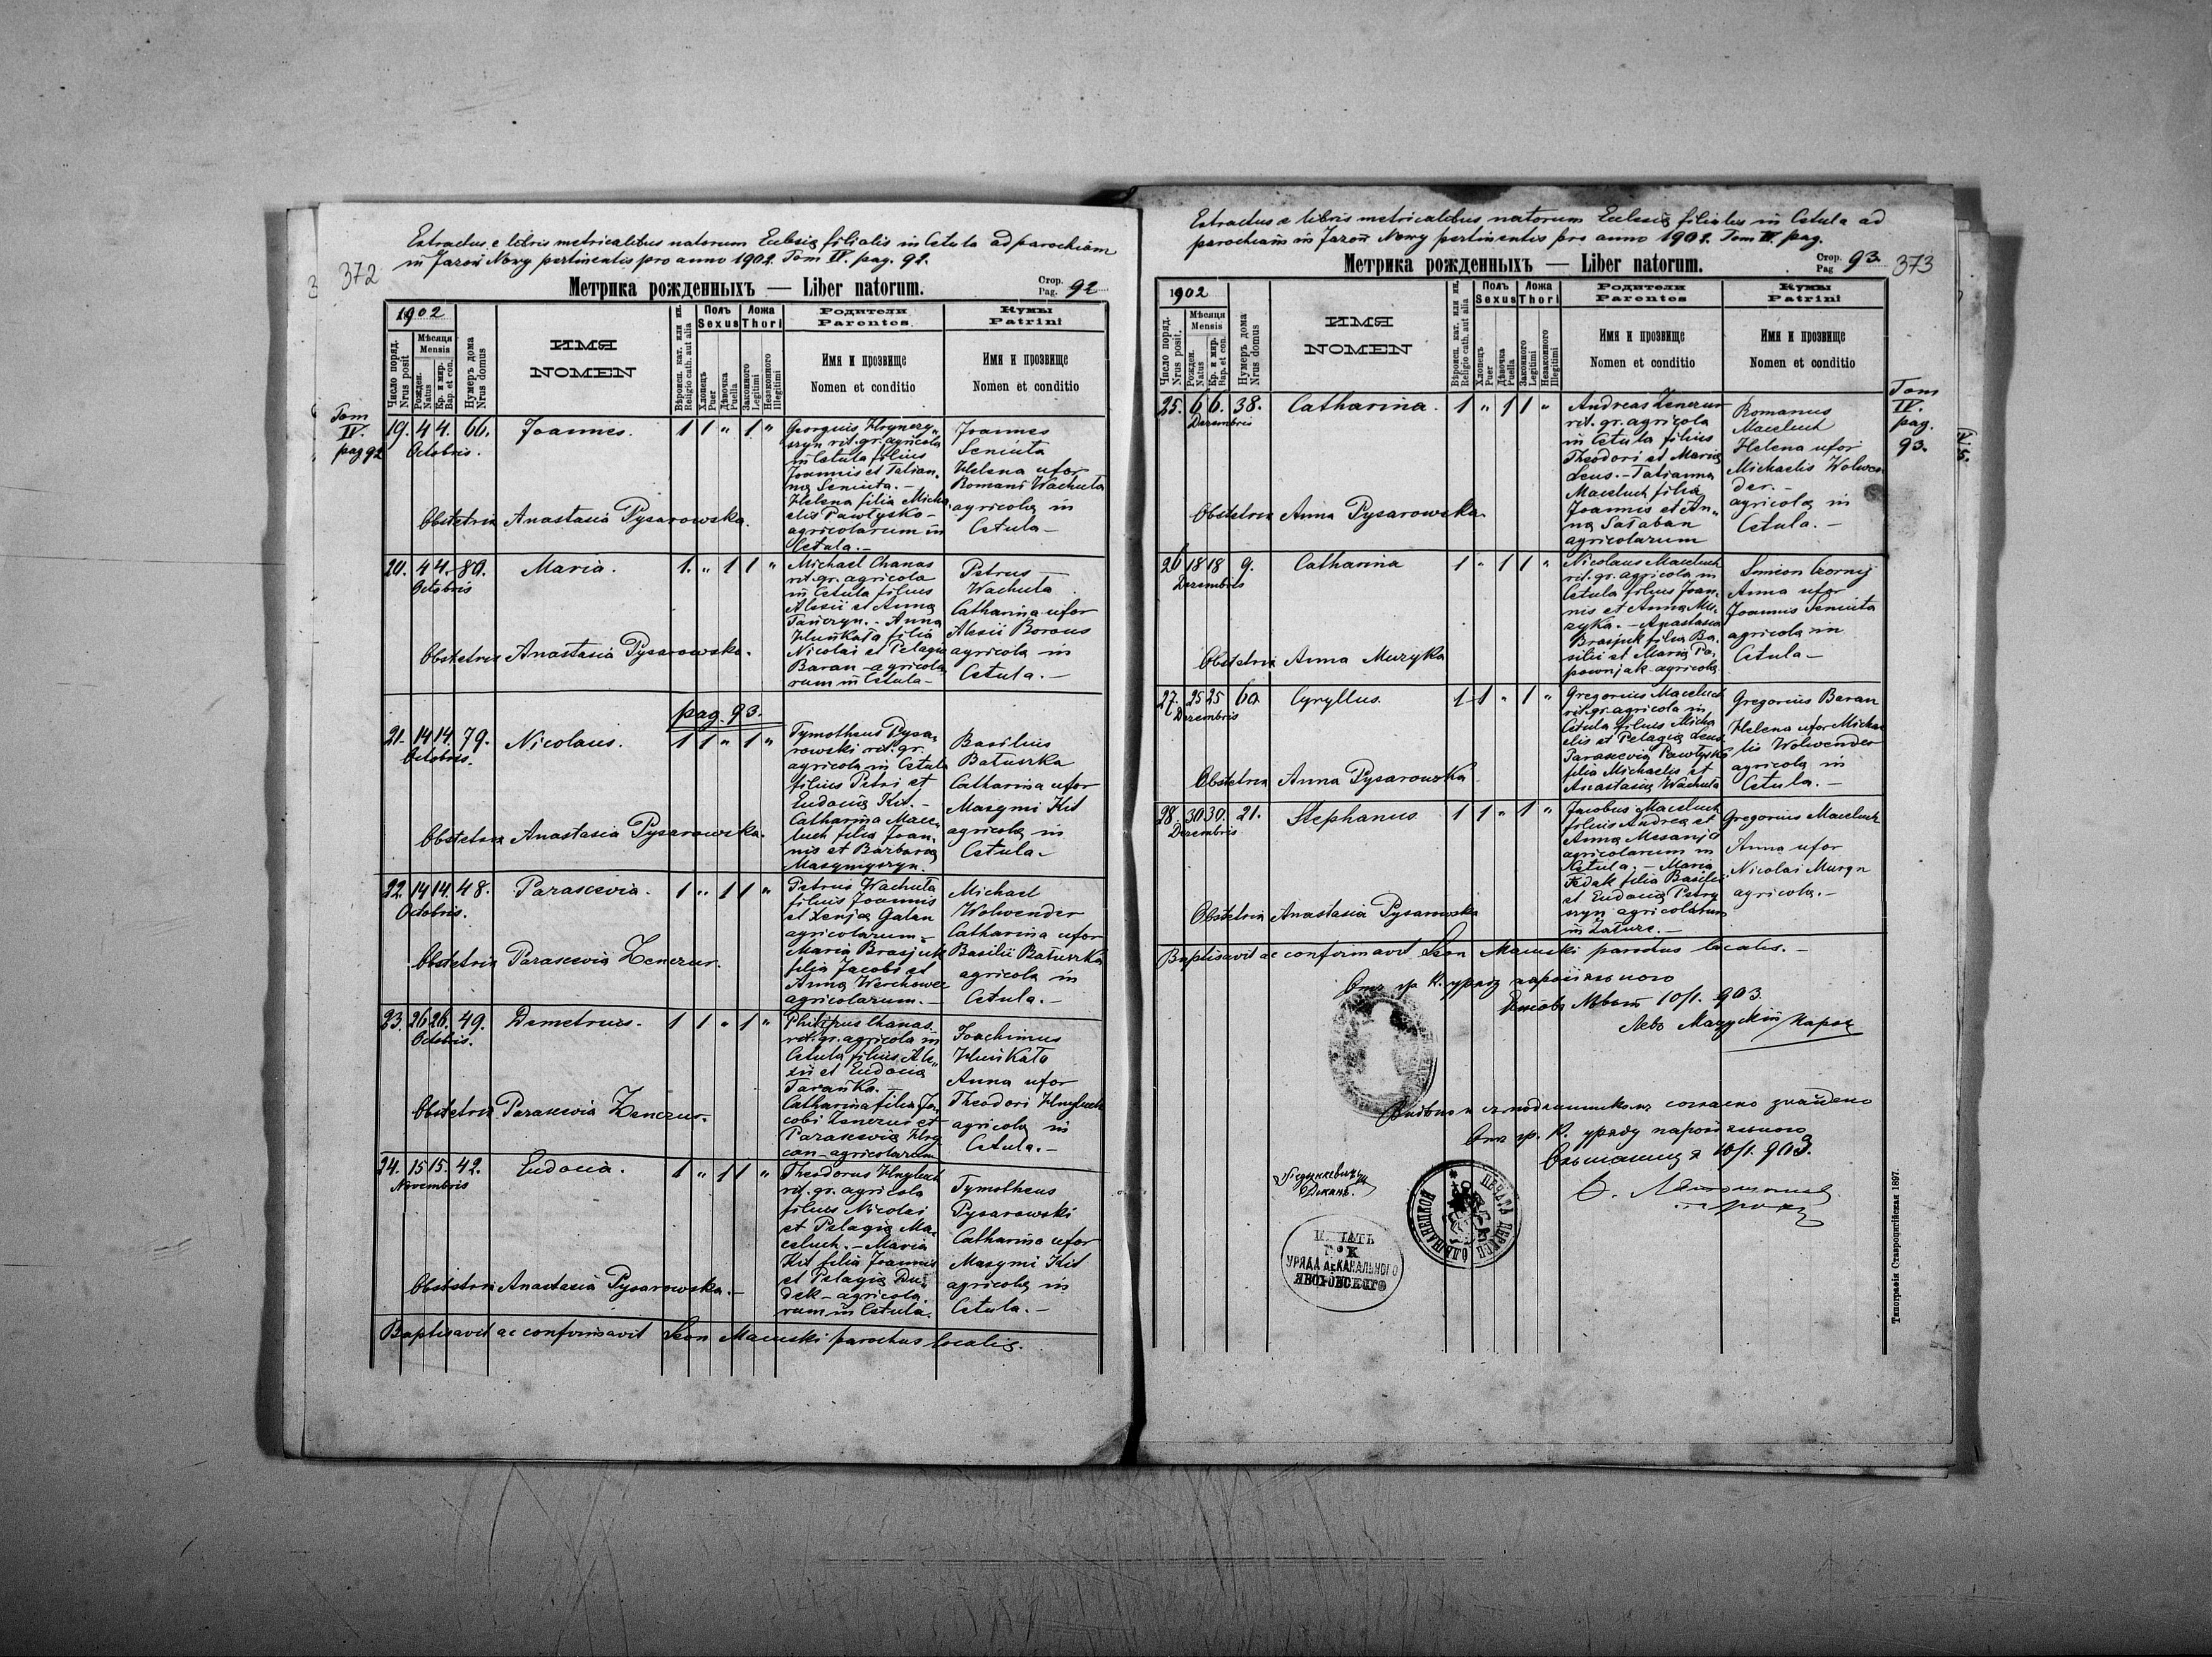 372
Extractus e libris metricalibus natorum Ecclesiæ filialis in Cetula ad parochiam
in Jazow Nowy pertinentis pro anno 1902. Tom IV. pag. 92.
Метрика рожденныхъ — Liber natorum.
Стор. Pag. 92
1902
Число поряд. Nrus posit
Мѣсяця Mensis
Рожден. Natus
Кр. и мир. Bap. et con.
Нумеръ дома Nrus domus
ИМЯ
NOMEN
Вѣроисп. кат. или ин. Religio cath. aut alia
Полъ Sexus
Хлопецъ Puer
Дѣвочка Puella
Ложа Thori
Законного Legitimi
Незаконного Illegitimi
Родители
Parentes
Имя и прозвище
Nomen et conditio
Кумы
Patrini
Имя и прозвище
Nomen et conditio
Tom
IV.
pag 92
19. 4 4. 66. Joannes. 1 1 " 1 "
Octobris.
Georgius Hrynczy-
szyn rit. gr. agricola
in Cetula filius
Joannis et Tatian-
næ Seniuta. -
Helena filia Micha
elis Pawłysko -
agricolarum in
Cetula. -
Joannes
Seniuta
Helena uxor
Romani Wachuta
agricolæ in
Cetula -
Obstetrix Anastasia Pysarowska.
20. 4 4. 80. Maria. 1. " 1 1 "
Octobris
Michael Chanas
rit. gr. agricola
in Cetula filius
Alexii et Annæ
Tanczyn. - Anna
Huńkała filia
Nicolai et Pelagiæ
Baran - agricola
rum in Cetula -
Petrus
Wachuta
Catharina uxor
Alexii Borous
agricola in
Cetula. -
Obstetrix Anastasia Pysarowska.
pag. 93.
21. 14 14. 79. Nicolaus. 1 1 " 1 "
Octobris.
Tymotheus Pysa-
rowski rit. gr.
agricola in Cetula
filius Petri et
Eudociæ Kit. -
Catharina Mace-
luch filia Joan-
nis et Barbaræ
Maxymyszyn.
Basilius
Batuszka
Catharina uxor
Maxymi Kit
agricolæ in
Cetula -
Obstetrix Anastasia Pysarowska.
22. 14 14 48. Parascevia. 1 " 1 1 "
Octobris.
Petrus Wachuta
filius Joannis
et Xenjæ Galan
agricolarum -
Maria Brasjuk
filia Jacobi et
Annæ Werchowec
agricolarum. -
Michael
Wolwender
Catharina uxor
Basilii Batuszka
agricola in
Cetula. -
Obstetrix Parascevia Zenczur.
23. 26 26. 49. Demetrius. 1 1 " 1 "
Octobris.
Philippus Chanas
rit. gr. agricola in
Cetula filius Ale-
xii et Eudociæ
Tarańka. -
Catharina filia Ja-
cobi Zenczur et
Parasceviæ Hry
can - agricolarum
Joachimus
Huńkała
Anna uxor
Theodori Hnyluch
agricolæ in
Cetula. -
Obstetrix Parascevia Zenczur.
24. 15 15. 42. Eudocia. 1 " 1 1 "
Novembris
Theodorus Hnyluch
rit. gr. agricola
filius Nicolai
et Pelagiæ Ma-
celuch. - Maria
Kit filia Joannis
et Pelagiæ Du-
dek - agricola
rum in Cetula.
Tymotheus
Pysarowski
Catharina uxor
Maxymi Kit
agricolæ in
Cetula. -
Obstetrix Anastasia Pysarowska. -
Baptisavit ac confirmavit Leon parochus localis.
Extractus e libris metricalibus natorum Ecclesiæ filialis in Cetula ad
parochiam in Jazow Nowy pertinentis pro anno 1902. Tom IV. pag.
Метрика рожденныхъ — Liber natorum.
Стор. Pag 93.
373
1902
Число поряд. Nrus posit.
Мѣсяця Mensis
Рожден. Natus
Кр. и мир. Bap. et con.
Нумеръ дома Nrus domus
ИМЯ
NOMEN
Вѣроисп. кат. или ин. Religio cath. aut alia
Полъ Sexus
Хлопецъ Puer
Дѣвочка Puella
Ложа Thori
Законного Legitimi
Незаконного Illegitimi
Родители
Parentes
Имя и прозвище
Nomen et conditio
Кумы
Patrini
Имя и прозвище
Nomen et conditio
Tom
IV.
pag.
93.
25. 6 6. 38. Catharina. 1 " 1 1 "
Dezembris
Andreas Zenczur
rit. gr. agricola
in Cetula filius
Theodori et Mariæ
Leus. - Tatianna
Maceluch filia
Joannis et An-
næ Sałaban
agricolarum
Romanus
Maceluch
Helena uxor
Michaelis Wolwen
der. -
agricolæ in
Cetula. -
Obstetrix Anna Pysarowska.
26 18 18 9. Catharina 1 " 1 1 "
Dezembris
Nicolaus Maceluch
rit. gr. agricola in
Cetula filius Joan-
nis et Annæ Mu-
zyka. - Anastasia
Brasjuk filia Ba-
silii et Mariæ Po-
pownjak agricolæ
Simeon Czornij
Anna uxor
Joannis Seniuta
agricolæ in
Cetula -
Obstetrix Anna Muzyka
27. 25 25 60. Cyryllus. 1 1 " 1 "
Dezembris
Gregorius Maceluch
rit. gr. agricola in
Cetula filius Micha
elis et Pelagiæ Leus
Parascevia Pawłysko
filia Michaelis et
Anastasiæ Wachuta
Gregorius Baran
Helena uxor Michae
lis Wolwender
agricola in
Cetula. -
Obstetrix Anna Pysarowska
28. 30 30. 21. Stephanus 1 1 " 1 "
Dezembris
Jacobus Maceluch
filius Andreæ et
Annæ Mesanjo
agricolarum in
Cetula. - Maria
Fedak filia Basilii
et Eudociæ Petry
szyn agricolarum
in Zaturc. -
Gregorius Maceluch
Anna uxor
Nicolai Muryn
agricolæ. -
Obstetrix Anastasia Pysarowska
Baptisavit ac confirmavit Leon parochus localis. -
Отъ гр. К. уряду парохіяльного
10/1. 903.
Левъ
согласно знайдено
Отъ гр. К. уряду парохіяльного
10/1. 903.
Деканъ.
ПЕЧАТЬ
Гр К
УРЯДА ДЕКАНАЛЬНОГО
ЯВОРОВСКАГО
Типографія Ставропигійская 1897.